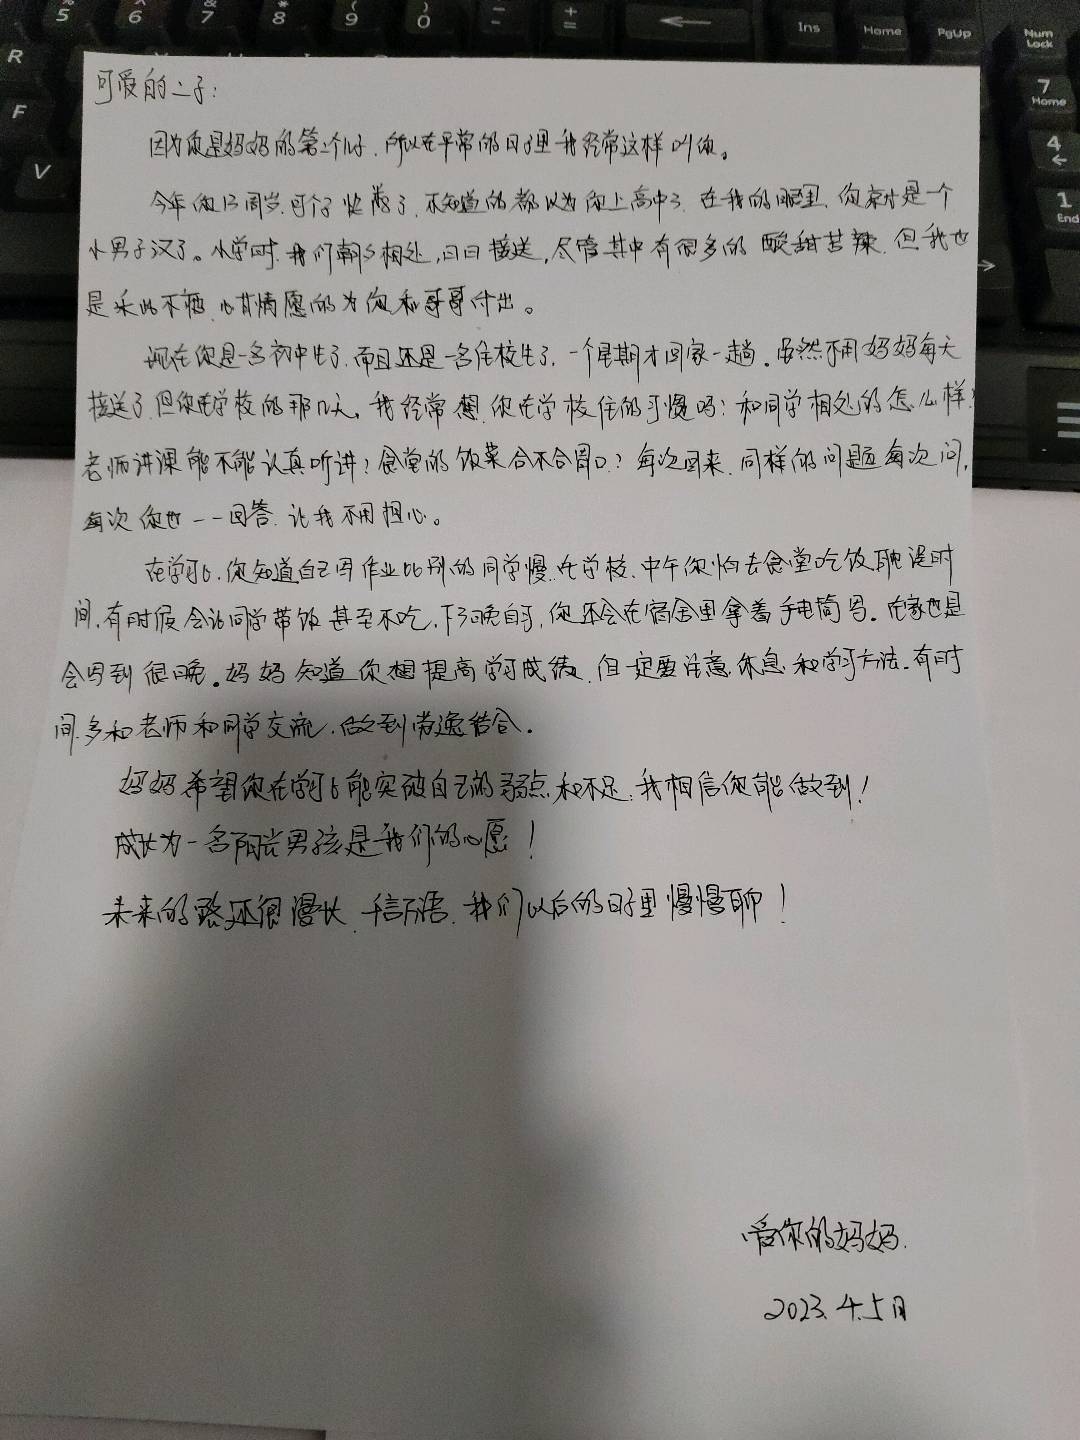 5 6 7 8 9 0 - + =
% & * ( )
Ins Home PgUp Num Lock
R
F
V
7 Home
4
1 End
可爱的二子:
因为你是妈妈的第二个儿子,所以在平常的日子里我经常这样叫你。
今年你13周岁,可个子长高了,不知道的都以为你上高中了,在我的眼里,你就是一个
小男子汉了。小学时,我们朝夕相处,日日接送,尽管其中有很多的酸甜苦辣,但我也
是乐此不疲,心甘情愿的为你和哥哥付出。
现在你是一名初中生了,而且还是一名住校生了,一个星期才回家一趟。虽然不用妈妈每天
接送了,但你在学校的那几天,我经常想,你在学校住的习惯吗?和同学相处的怎么样?
老师讲课能不能认真听讲?食堂的饭菜合不合胃口?每次回来,同样的问题每次问,
每次你也一一回答,让我不用担心。
在学习上,你知道自己写作业比别的同学慢,在学校,中午你怕去食堂吃饭耽误时
间,有时候会让同学带饭甚至不吃,下了晚自习,你还会在宿舍里拿着手电筒写。在家也是
会写到很晚。妈妈知道你想提高学习成绩,但一定要注意休息和学习方法,有时
间多和老师和同学交流,做到劳逸结合。
妈妈希望你在学习上能突破自己的弱点和不足,我相信你能做到!
成长为一名阳光男孩是我们的心愿!
未来的路还很漫长,千言万语,我们以后的日子里慢慢聊!
爱你的妈妈.
2023.4.5日